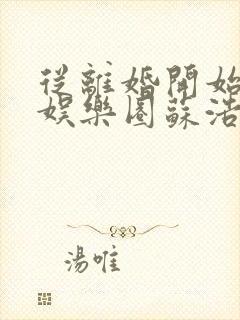 從離婚開始
娛樂圈蘇浩
湯唯